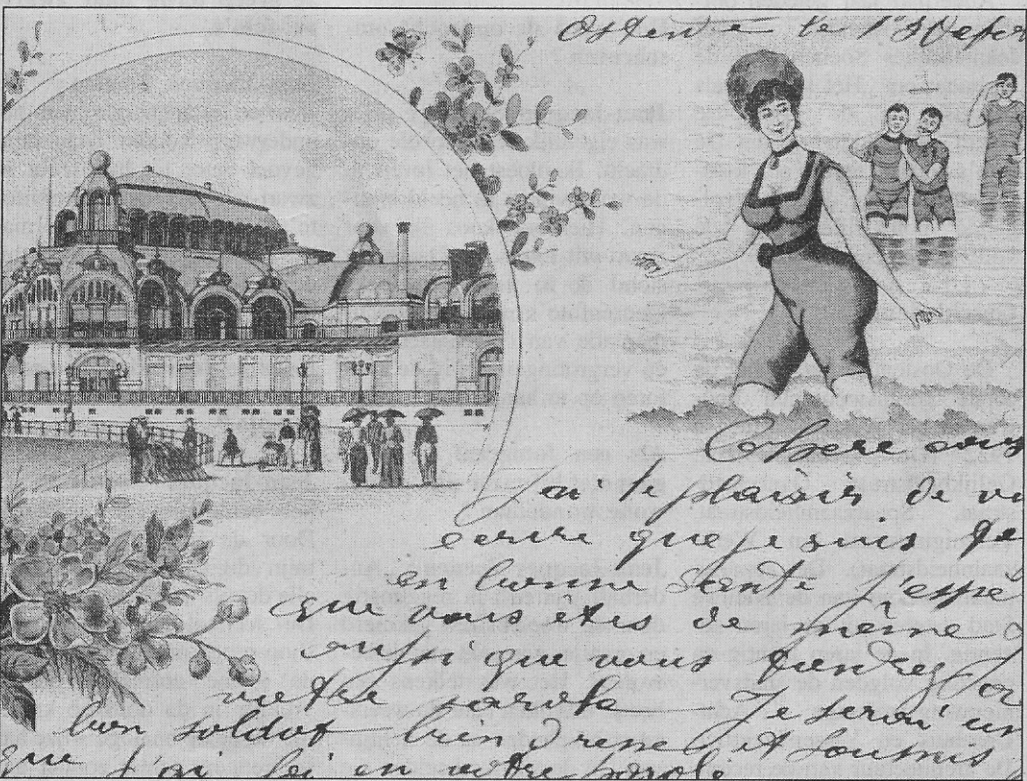 Ostende le
Chere cous
j'ai le plaisir de vo
ecrire que je suis
en bonne santé j'espe
que vous etes de même
aussi que vous tiendrez
votre parole – Je serai un
bon soldat bien et soumis
que j'ai foi en votre parole